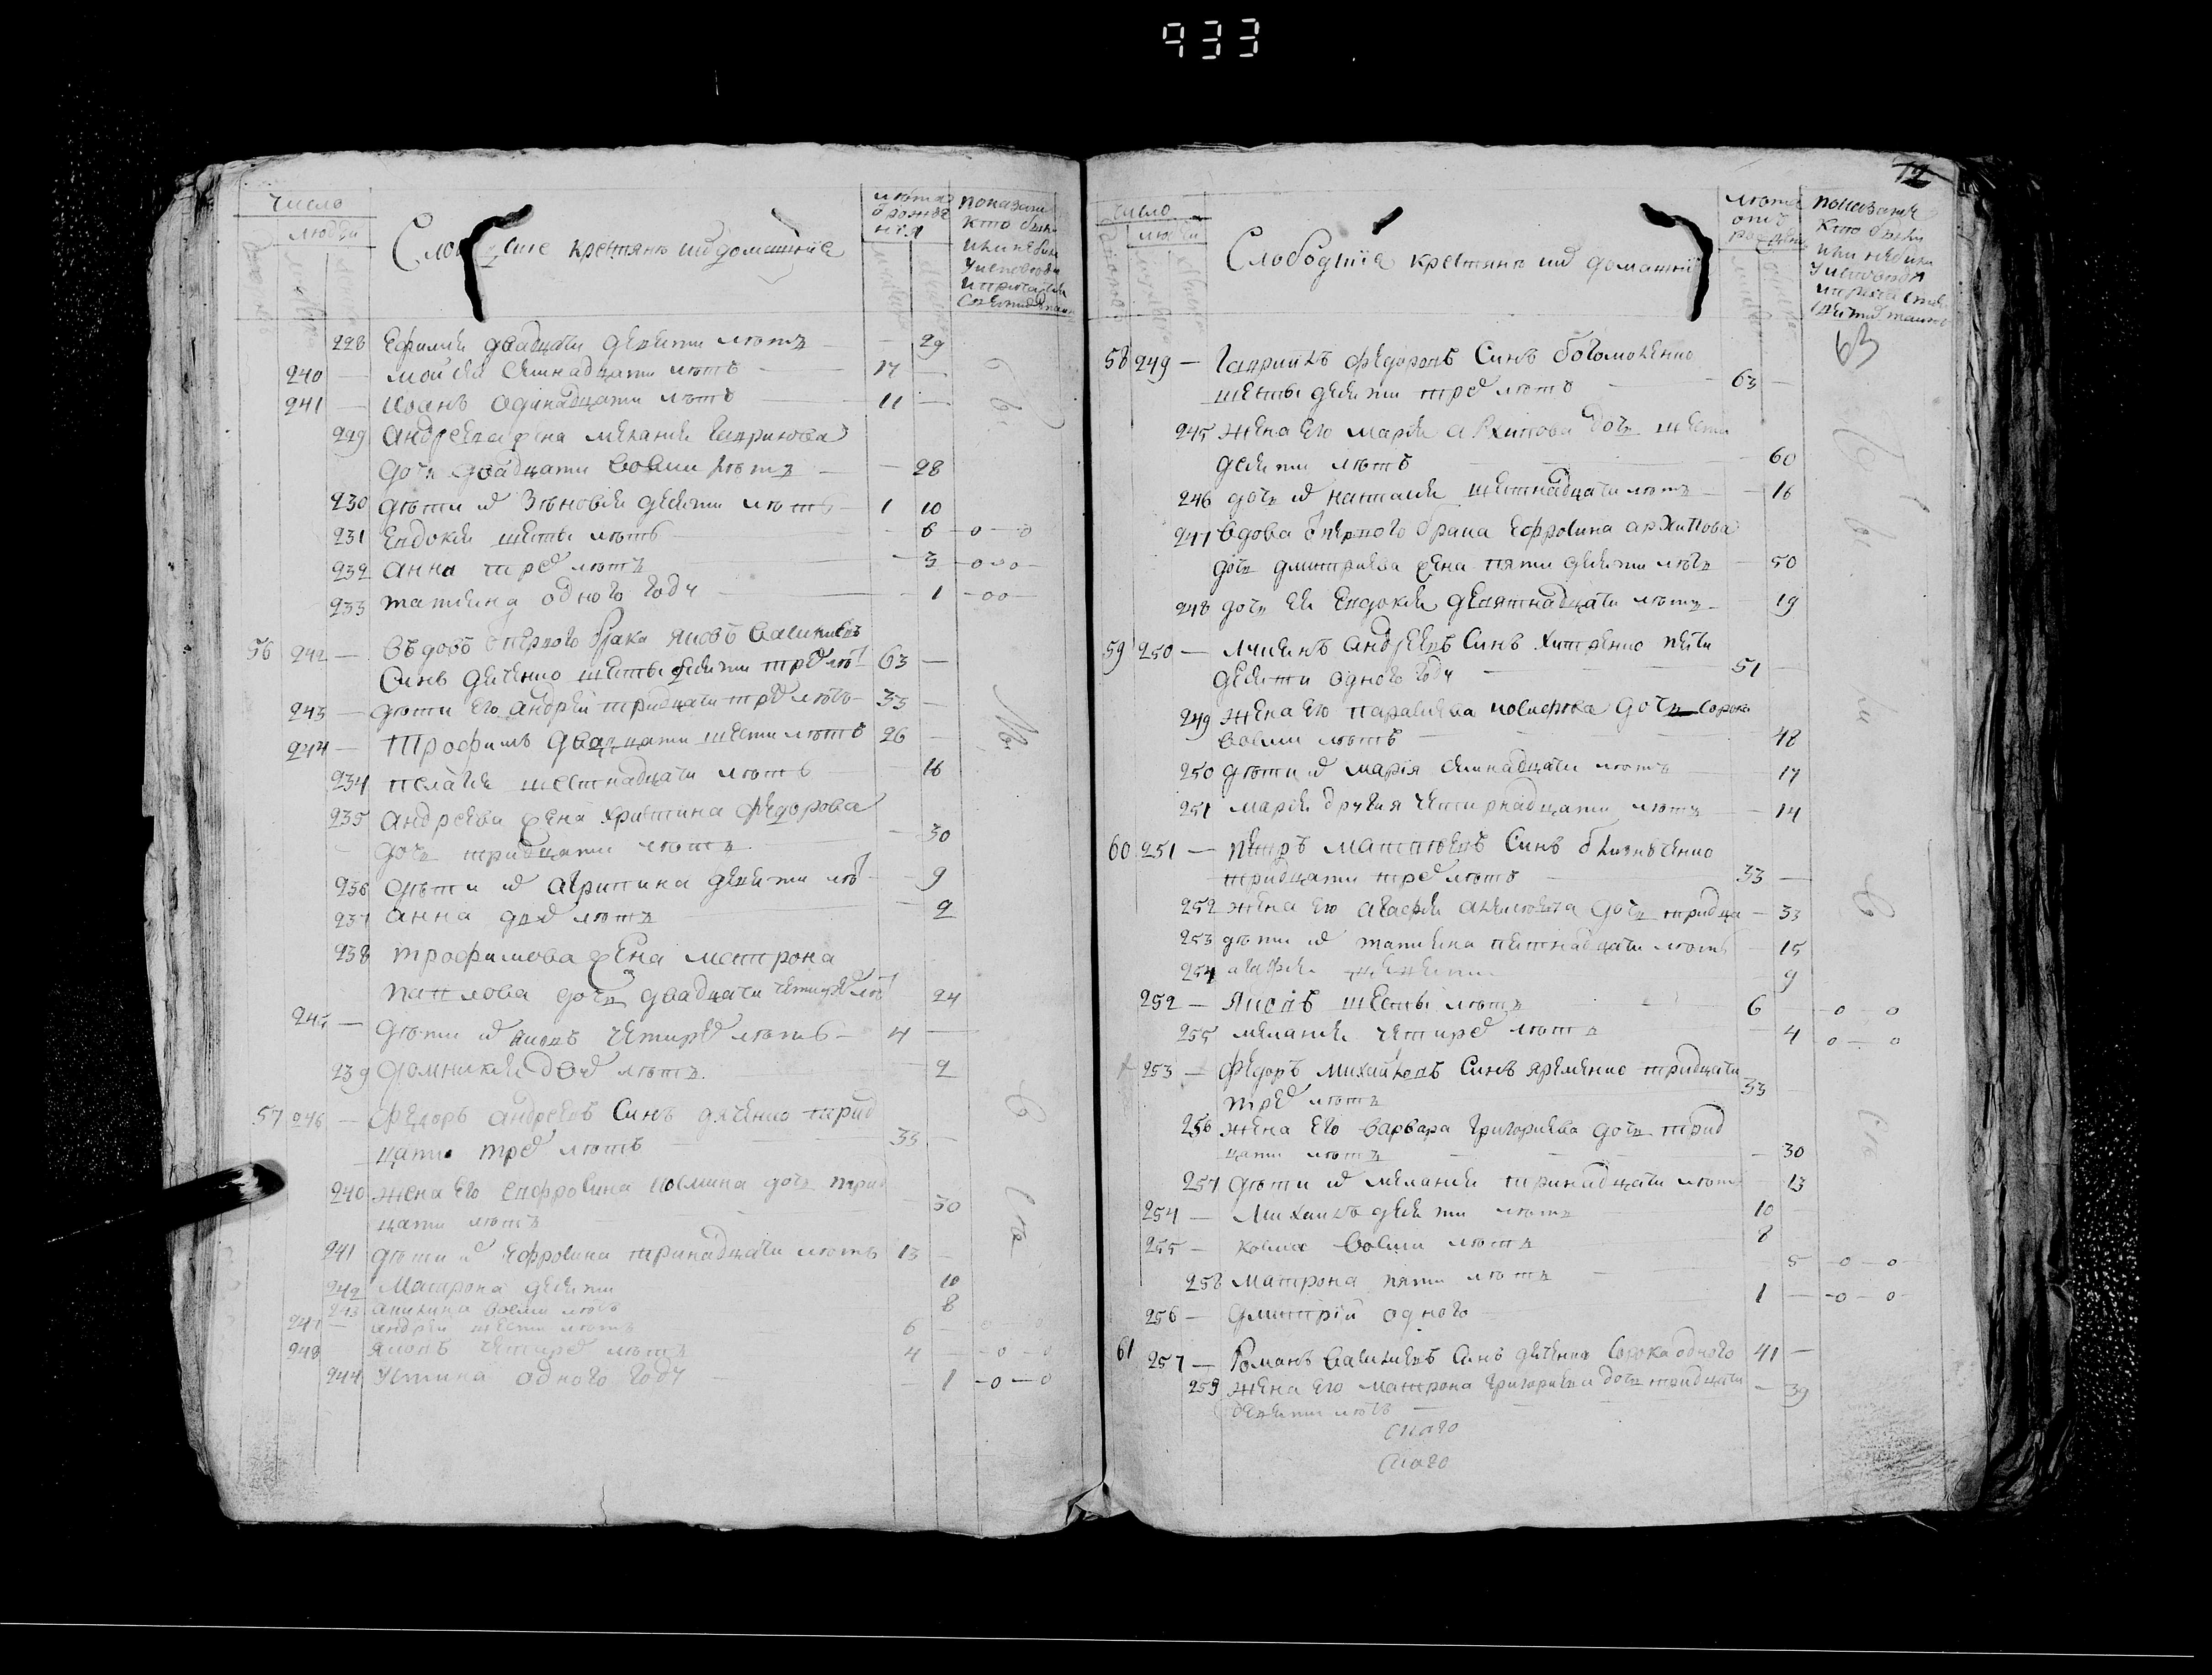 933
число
людей
крестяне и их домашние
лѣта
показание
кто были
228 Ефимия двадцати девяти лѣтъ 29
240 — моисей семнадцати лѣтъ 17 —
241 — иоанъ одинадцати лѣтъ 11 —
229 андреева жена мелания гаврилова
дочь двадцати восми лѣтъ — 28
230 дѣти их зѣновия десяти лѣтъ 1 10
231 Евдокия шесты лѣтъ — 6 — о — о
232 анна трех лѣтъ — 3 — о о о —
233 татияна одного году — 1 — о о —
56 242 — Вѣдовъ с первого брака яковъ василиевъ
Синъ дяченко шесты десяти трех лѣт 63 —
243 — дѣти его андрей тридцати трех лѣтъ 33 —
244 — Трофимъ двадцати шести лѣтъ 26 —
234 пелагия шестнадцати лѣтъ 16
235 андреева жена христина федорова
дочь тридцати лѣтъ — 30
236 дѣти их агрипина девяти лѣ — 9
237 анна двех лѣтъ 2
238 трофимова жена матрона
павлова дочь двадцати четирех лѣт 24
245 — дѣти их яковъ четирех лѣтъ — 4 —
239 домникия двох лѣтъ — 2
57 246 — Федоръ андреевъ Синъ дяченко трид
цати трех лѣтъ 33 —
240 жена его евфросина космина дочь трид
цати лѣтъ 30
241 дѣти их ефросина тринадцати лѣтъ 13 —
242 Матрона десяти 10
243 акилина восми лѣтъ 8
247 — андрей шести лѣтъ 6 — о о
248 яковъ четирех лѣтъ 4 — о — о
244 Устина одного году — 1 — о — о
12
число
людей
Слободские крестяне их домашние
лѣта
отъ
показание
кто были
63
58 249 — Гавриилъ федоровъ Синъ богомоленко
шесты десяти трех лѣтъ — 63 —
245 жена его мария архипова дочь шести
десяти лѣтъ 60
246 дочь их наталия шестнадцати лѣтъ — 16
247 вдова с первого брака Ефросина архипова
дочь дмитриева жена пяти десяти лѣтъ — 50
248 дочь ея Евдокия девятнадцати лѣтъ — 19
59 250 — андреевъ Синъ хитренко пяти
десяти одного году — 51 —
249 жена его параскева иосифова дочь сорока
восми лѣтъ 48
250 дѣти их марія семнадцати лѣтъ 17
251 мария другая четирнадцати лѣтъ — 14
60 251 — петръ матвѣевъ Синъ близнюченко
тридцати трех лѣтъ — 33 —
252 жена его агафия дочь тридца — 33
253 дѣти их татияна пятнадцати лѣтъ — 15
254 агафия девяти 9
252 — яковъ шесты лѣтъ 6 — о — о
255 мелания четирех лѣтъ 4 о — о
253 — Федоръ михайловъ Синъ яременко тридцати
трех лѣтъ 33 —
256 жена его варвара григориева дочь трид
цати лѣтъ — 30
257 дѣти их мелания тринадцати лѣтъ — 13
254 — михаилъ десяти лѣтъ 10 —
255 — косма восми лѣтъ 8
258 матрона пяти лѣтъ — 5 — о — о
256 — дмитрій одного — 1 — о — о
61 257 — романъ василиевъ Синъ дяченко сорока одного 41 —
259 жена его матрона григориева дочь тридцати — 39
девяти лѣтъ —